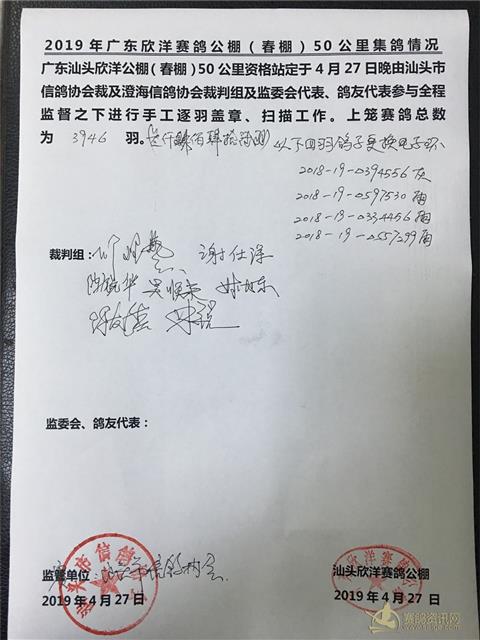 2019年广东欣洋赛鸽公棚（春棚）50公里集鸽情况
广东汕头欣洋公棚（春棚）50公里资格站定于4月27日晚由汕头市
信鸽协会裁及澄海信鸽协会裁判组及监委会代表、鸽友代表参与全程
监督之下进行手工逐羽盖章、扫描工作。上笼赛鸽总数
为 3946 羽。以下四羽鸽子更换电子环
2018-19-0394556灰
2018-19-0597530雨
2018-19-0334456雨
2018-19-0557299雨
裁判组：谢仕泽
监委会、鸽友代表：
监管单位：
汕头欣洋赛鸽公棚
2019年4月27日
2019年4月27日
赛鸽资讯网